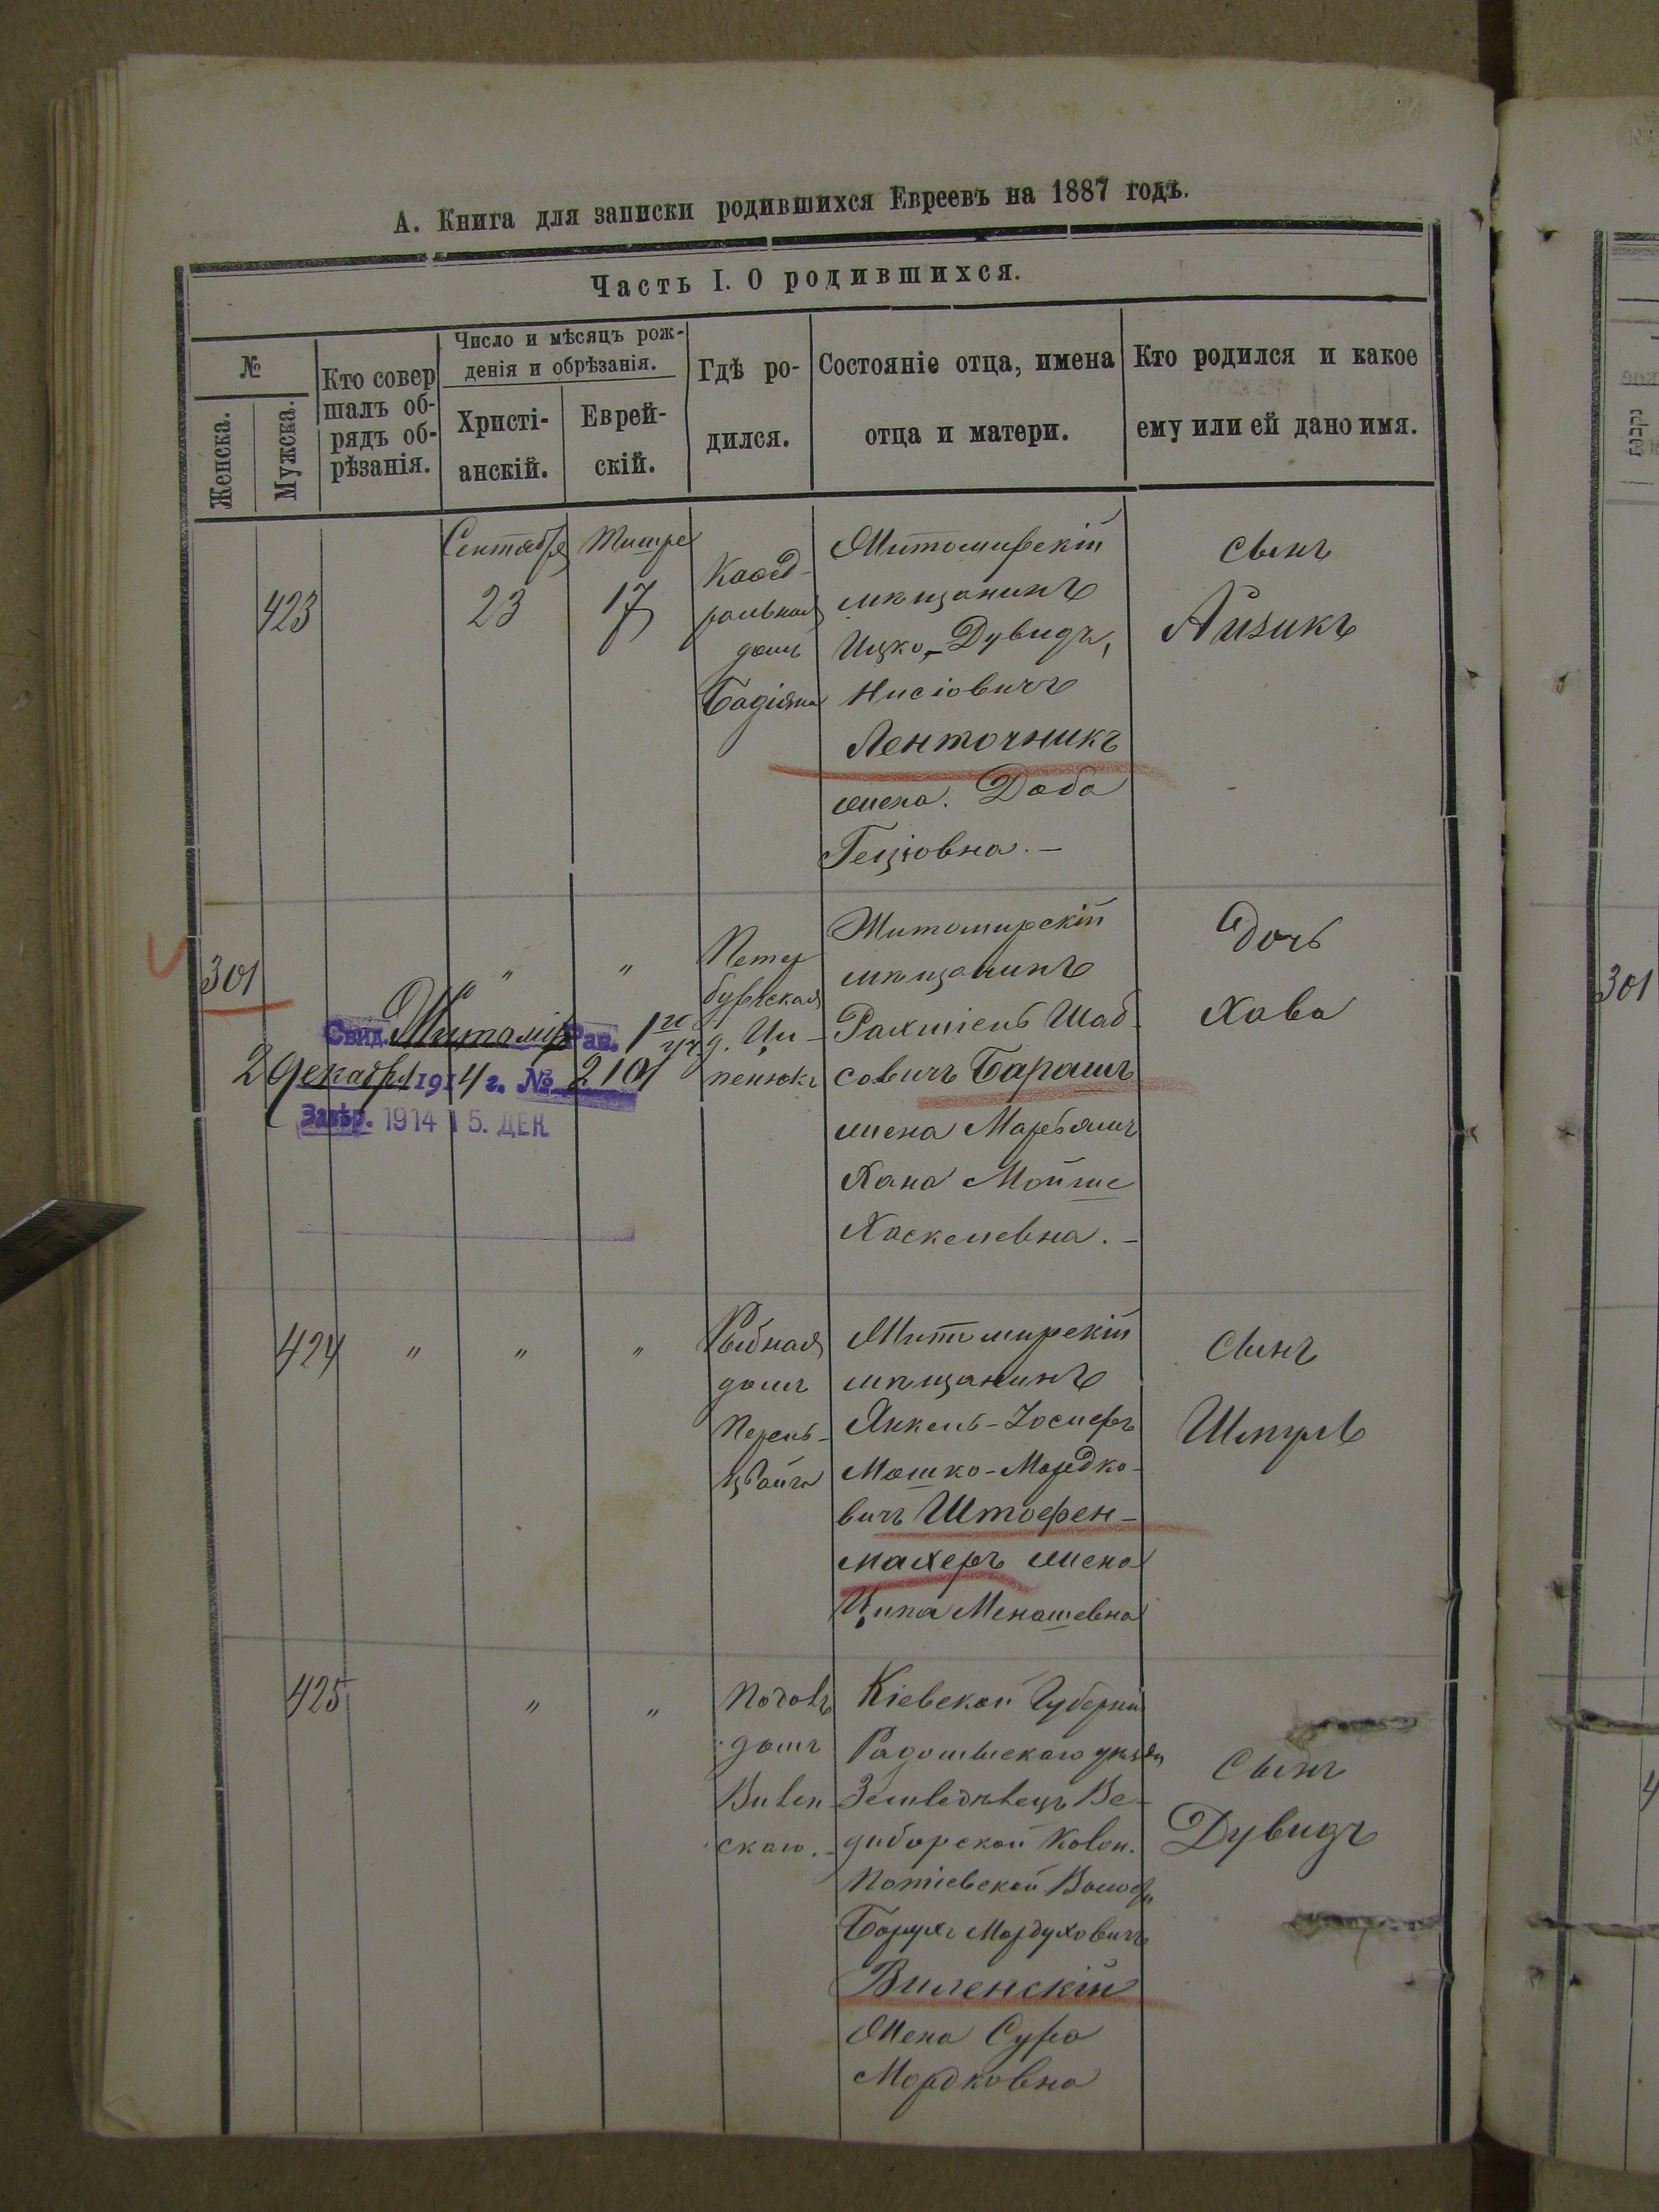 А. Книга для записки родившихся Евреевъ на 1887 годъ.
Часть I. О родившихся.
№
Женска.
Мужска.
Кто совер
шалъ об-
рядъ об-
рѣзанія.
Число и мѣсяцъ рож-
денія и обрѣзанія.
Христі-
анскій.
Еврей-
скій.
Гдѣ ро-
дился.
Состояніе отца, имена
отца и матери.
Кто родился и какое
ему или ей дано имя.
423
Сентября
23
Тишре
17
Каѳед-
ральная
домъ
Бадіяна
Житомирскій
мѣщанинъ
Ицко-Дувидъ,
Нисіовичъ
Ленточникъ
жена. Доба
Геціовна. —
сынъ
Айзикъ
301
"
"
Петер
бургская
д. Ци-
пенюкъ
Житомирскій
мѣщанинъ
Рахміель Шаб-
совичъ Барашъ
жена Марьямъ
Хана Мойше
Хаскелевна. —
Дочь
Хава
Свид. Житомір Рав. 1го уч.
2 декабря 1914 г. № 2101
Завѣр. 1914 15. ДЕК
424
"
"
"
Рыбная
домъ
Перель-
цвайга
Житомирскій
мѣщанинъ
Янкель-Іосифъ
Мошко-Мордко-
вичъ Штофен-
махеръ жена
Ципа Менашевна
Сынъ
Шмуль
425
"
"
Подолъ
домъ
Вилен
скаго. —
Кіевской Губерніи
Радомысскаго уѣзда
Земледѣлецъ Ве-
диборской Колон.
Потіевской Волости
Борухъ Мордуховичъ
Виленскій
Жена Сура
Мордковна
Сынъ
Дувидъ
301